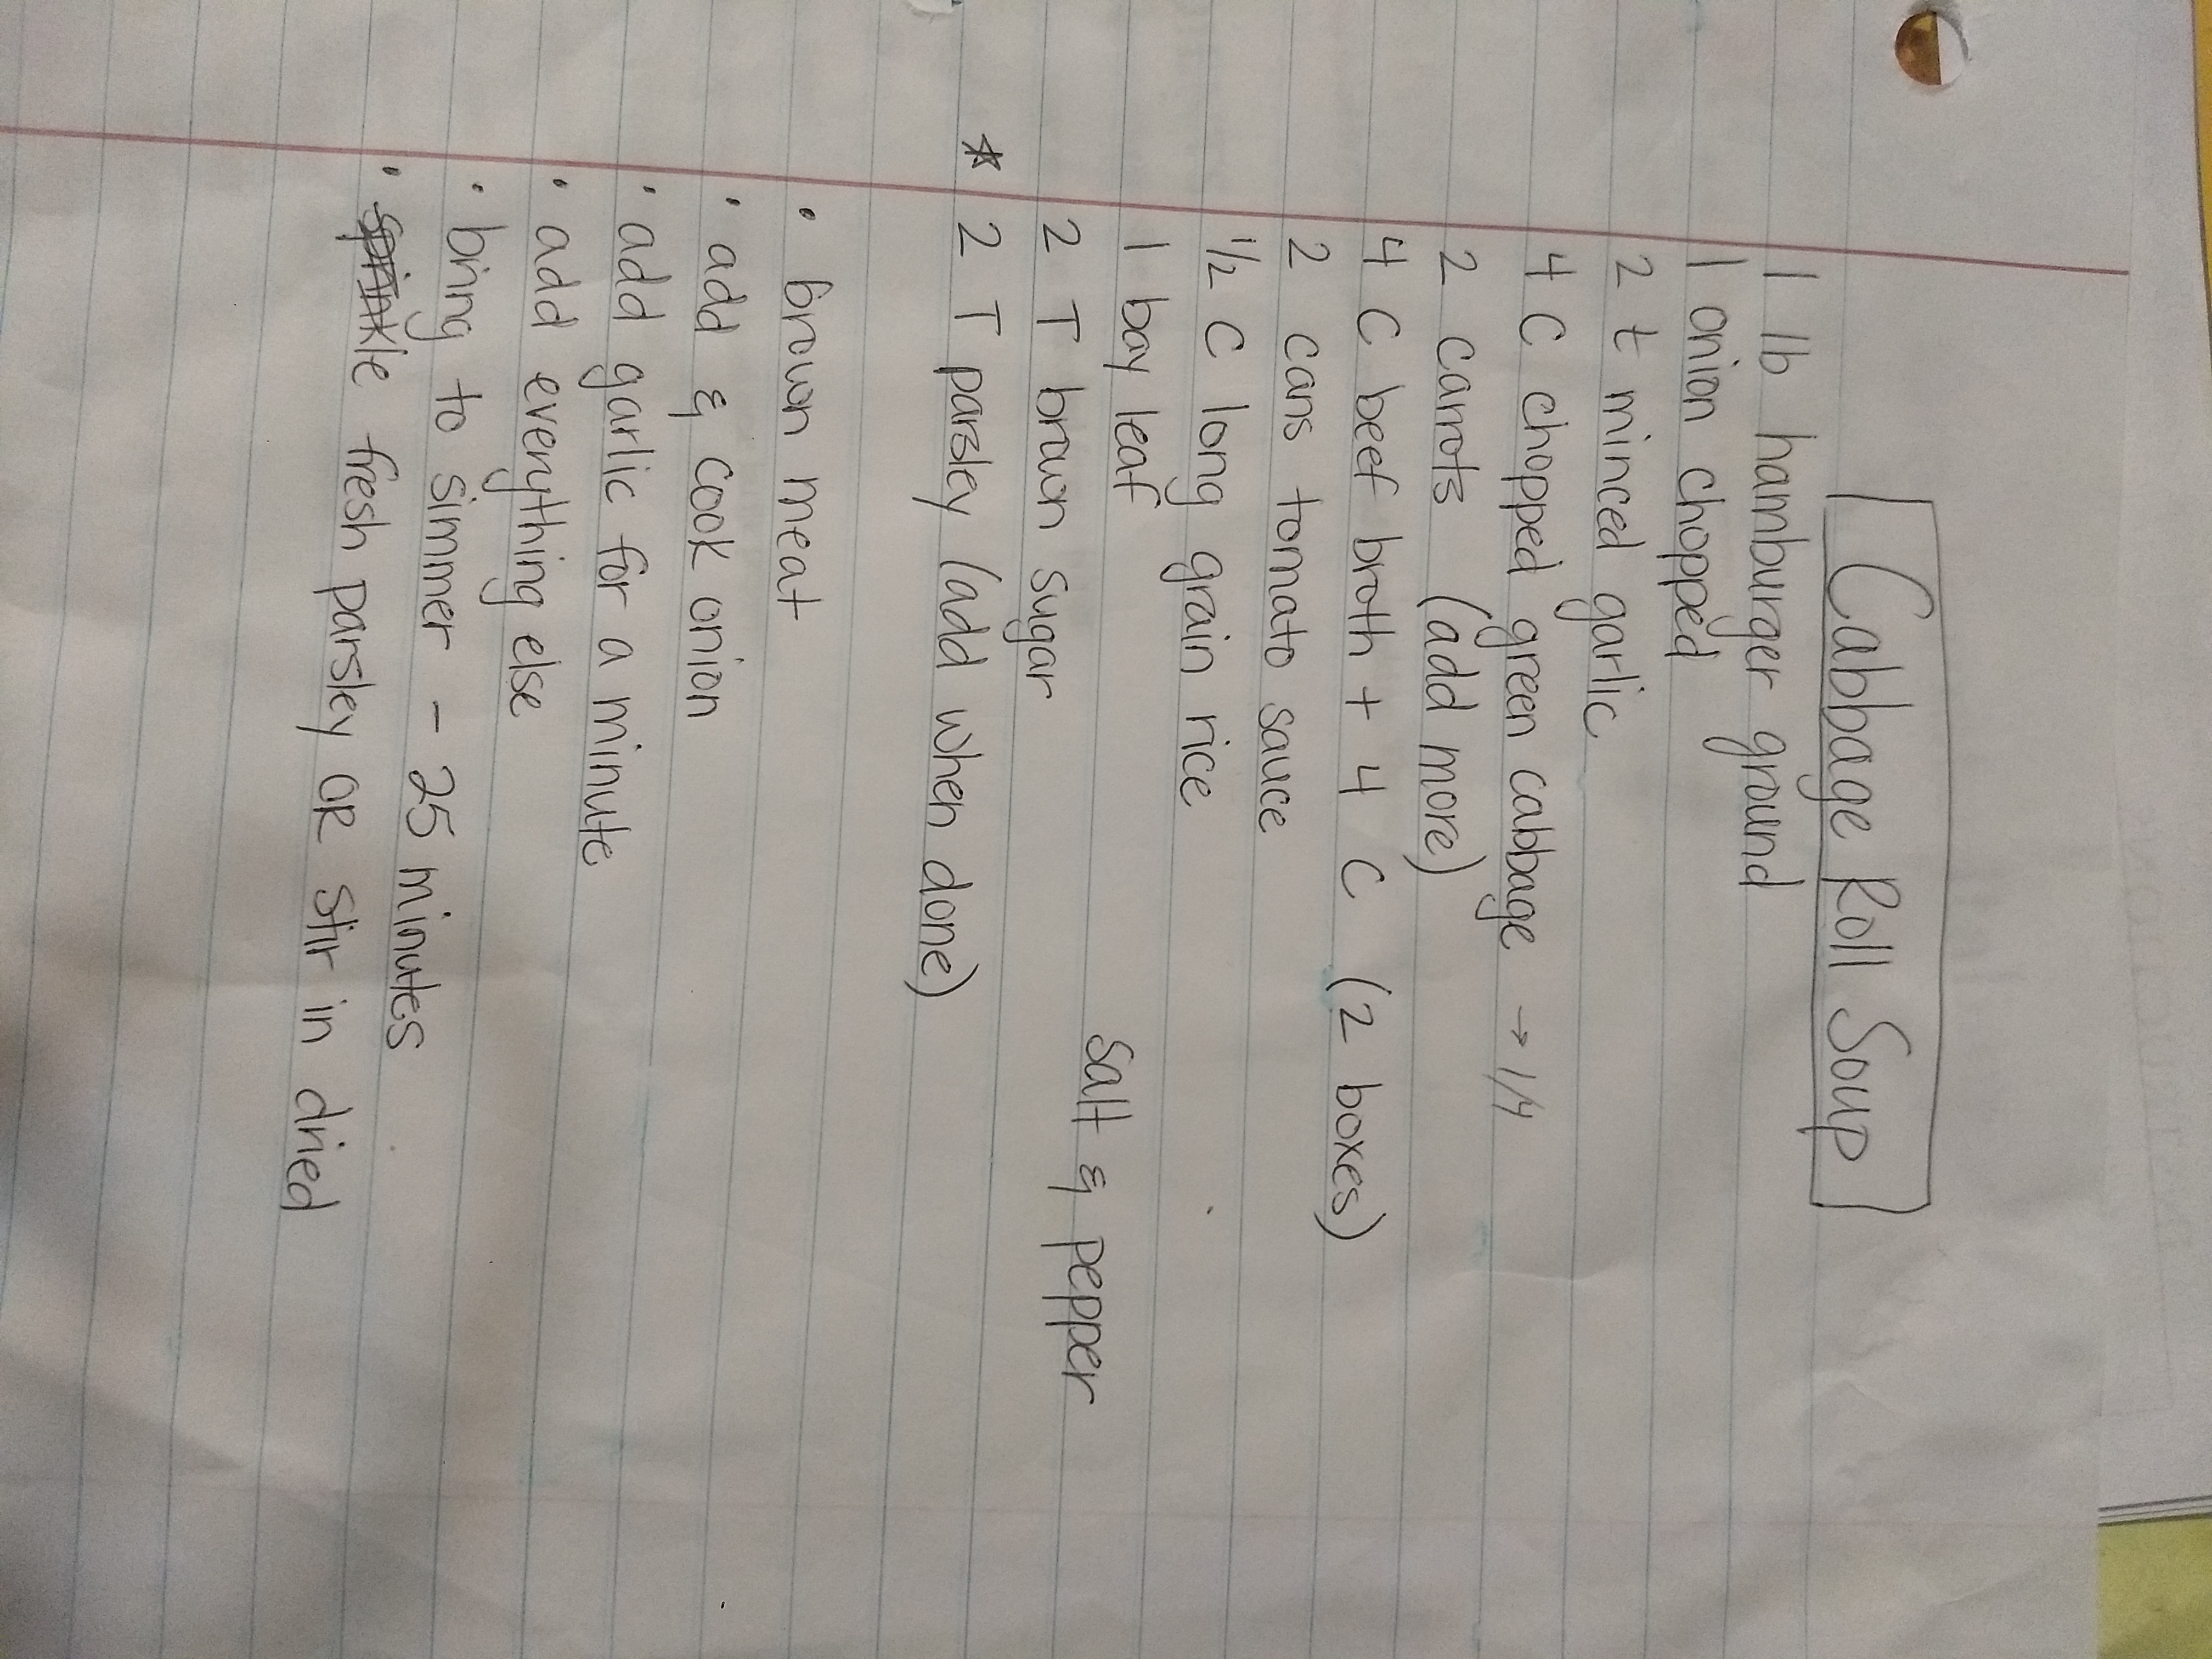 INSTRUCTIONS
Cabbage Roll Soup
1 lb hamburger ground
1 onion chopped
2 t minced garlic
4 C chopped green cabbage → 1/4
2 carrots (add more)
4 C beef broth + 4 C (2 boxes)
2 cans tomato sauce
1/2 C long grain rice
1 bay leaf
salt & pepper
2 T brown sugar
* 2 T parsley (add when done)
• brown meat
• add & cook onion
• add garlic for a minute
• add everything else
• bring to simmer - 25 minutes
• sprinkle fresh parsley OR stir in dried